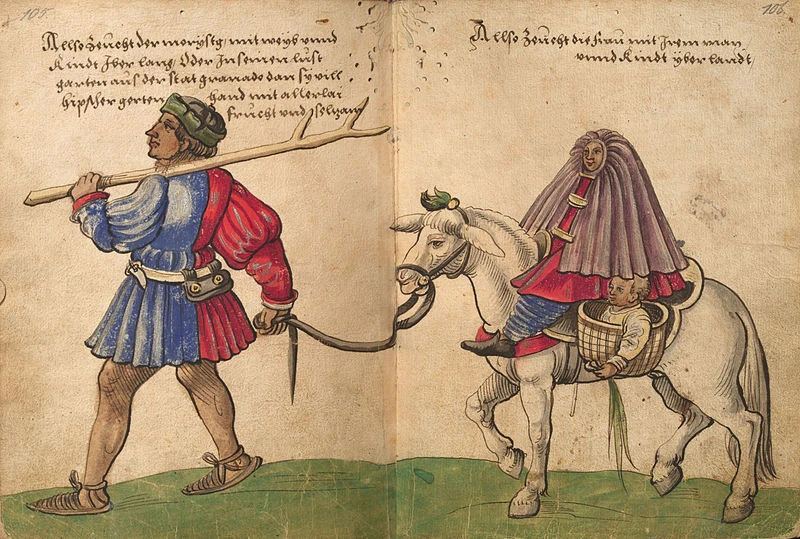 105.
Allso zeucht der morystg, mit weyb unnd
Kindt Jber lang, Oder In seinen lust
garten aus der stat granado dan sy vill
hipscher gerten hand mit allerlai
frucht und selzam
106.
Allso zeucht die frau mit Irem man
unnd Kindt yber landt,